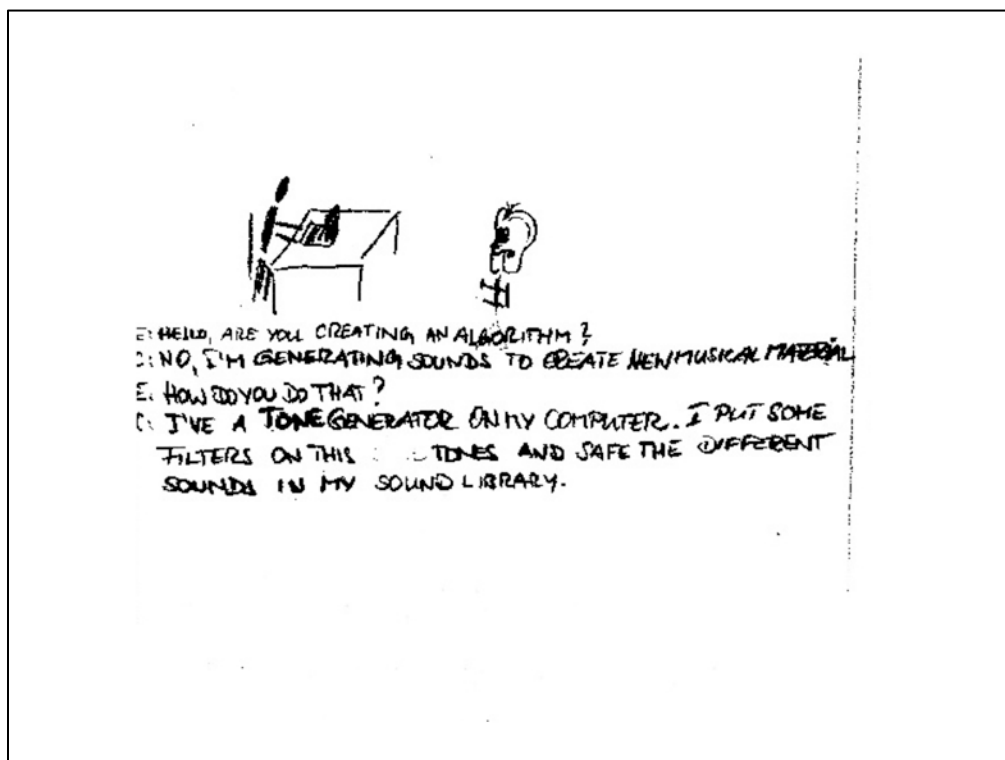 E: HELLO, ARE YOU CREATING AN ALGORITHM?
C: NO, I'M GENERATING SOUNDS TO CREATE NEW MUSICAL MATERIAL
E: HOW DO YOU DO THAT?
C: I'VE A TONE GENERATOR ON MY COMPUTER. I PUT SOME
FILTERS ON THIS TONES AND SAFE THE DIFFERENT
SOUNDS IN MY SOUND LIBRARY.